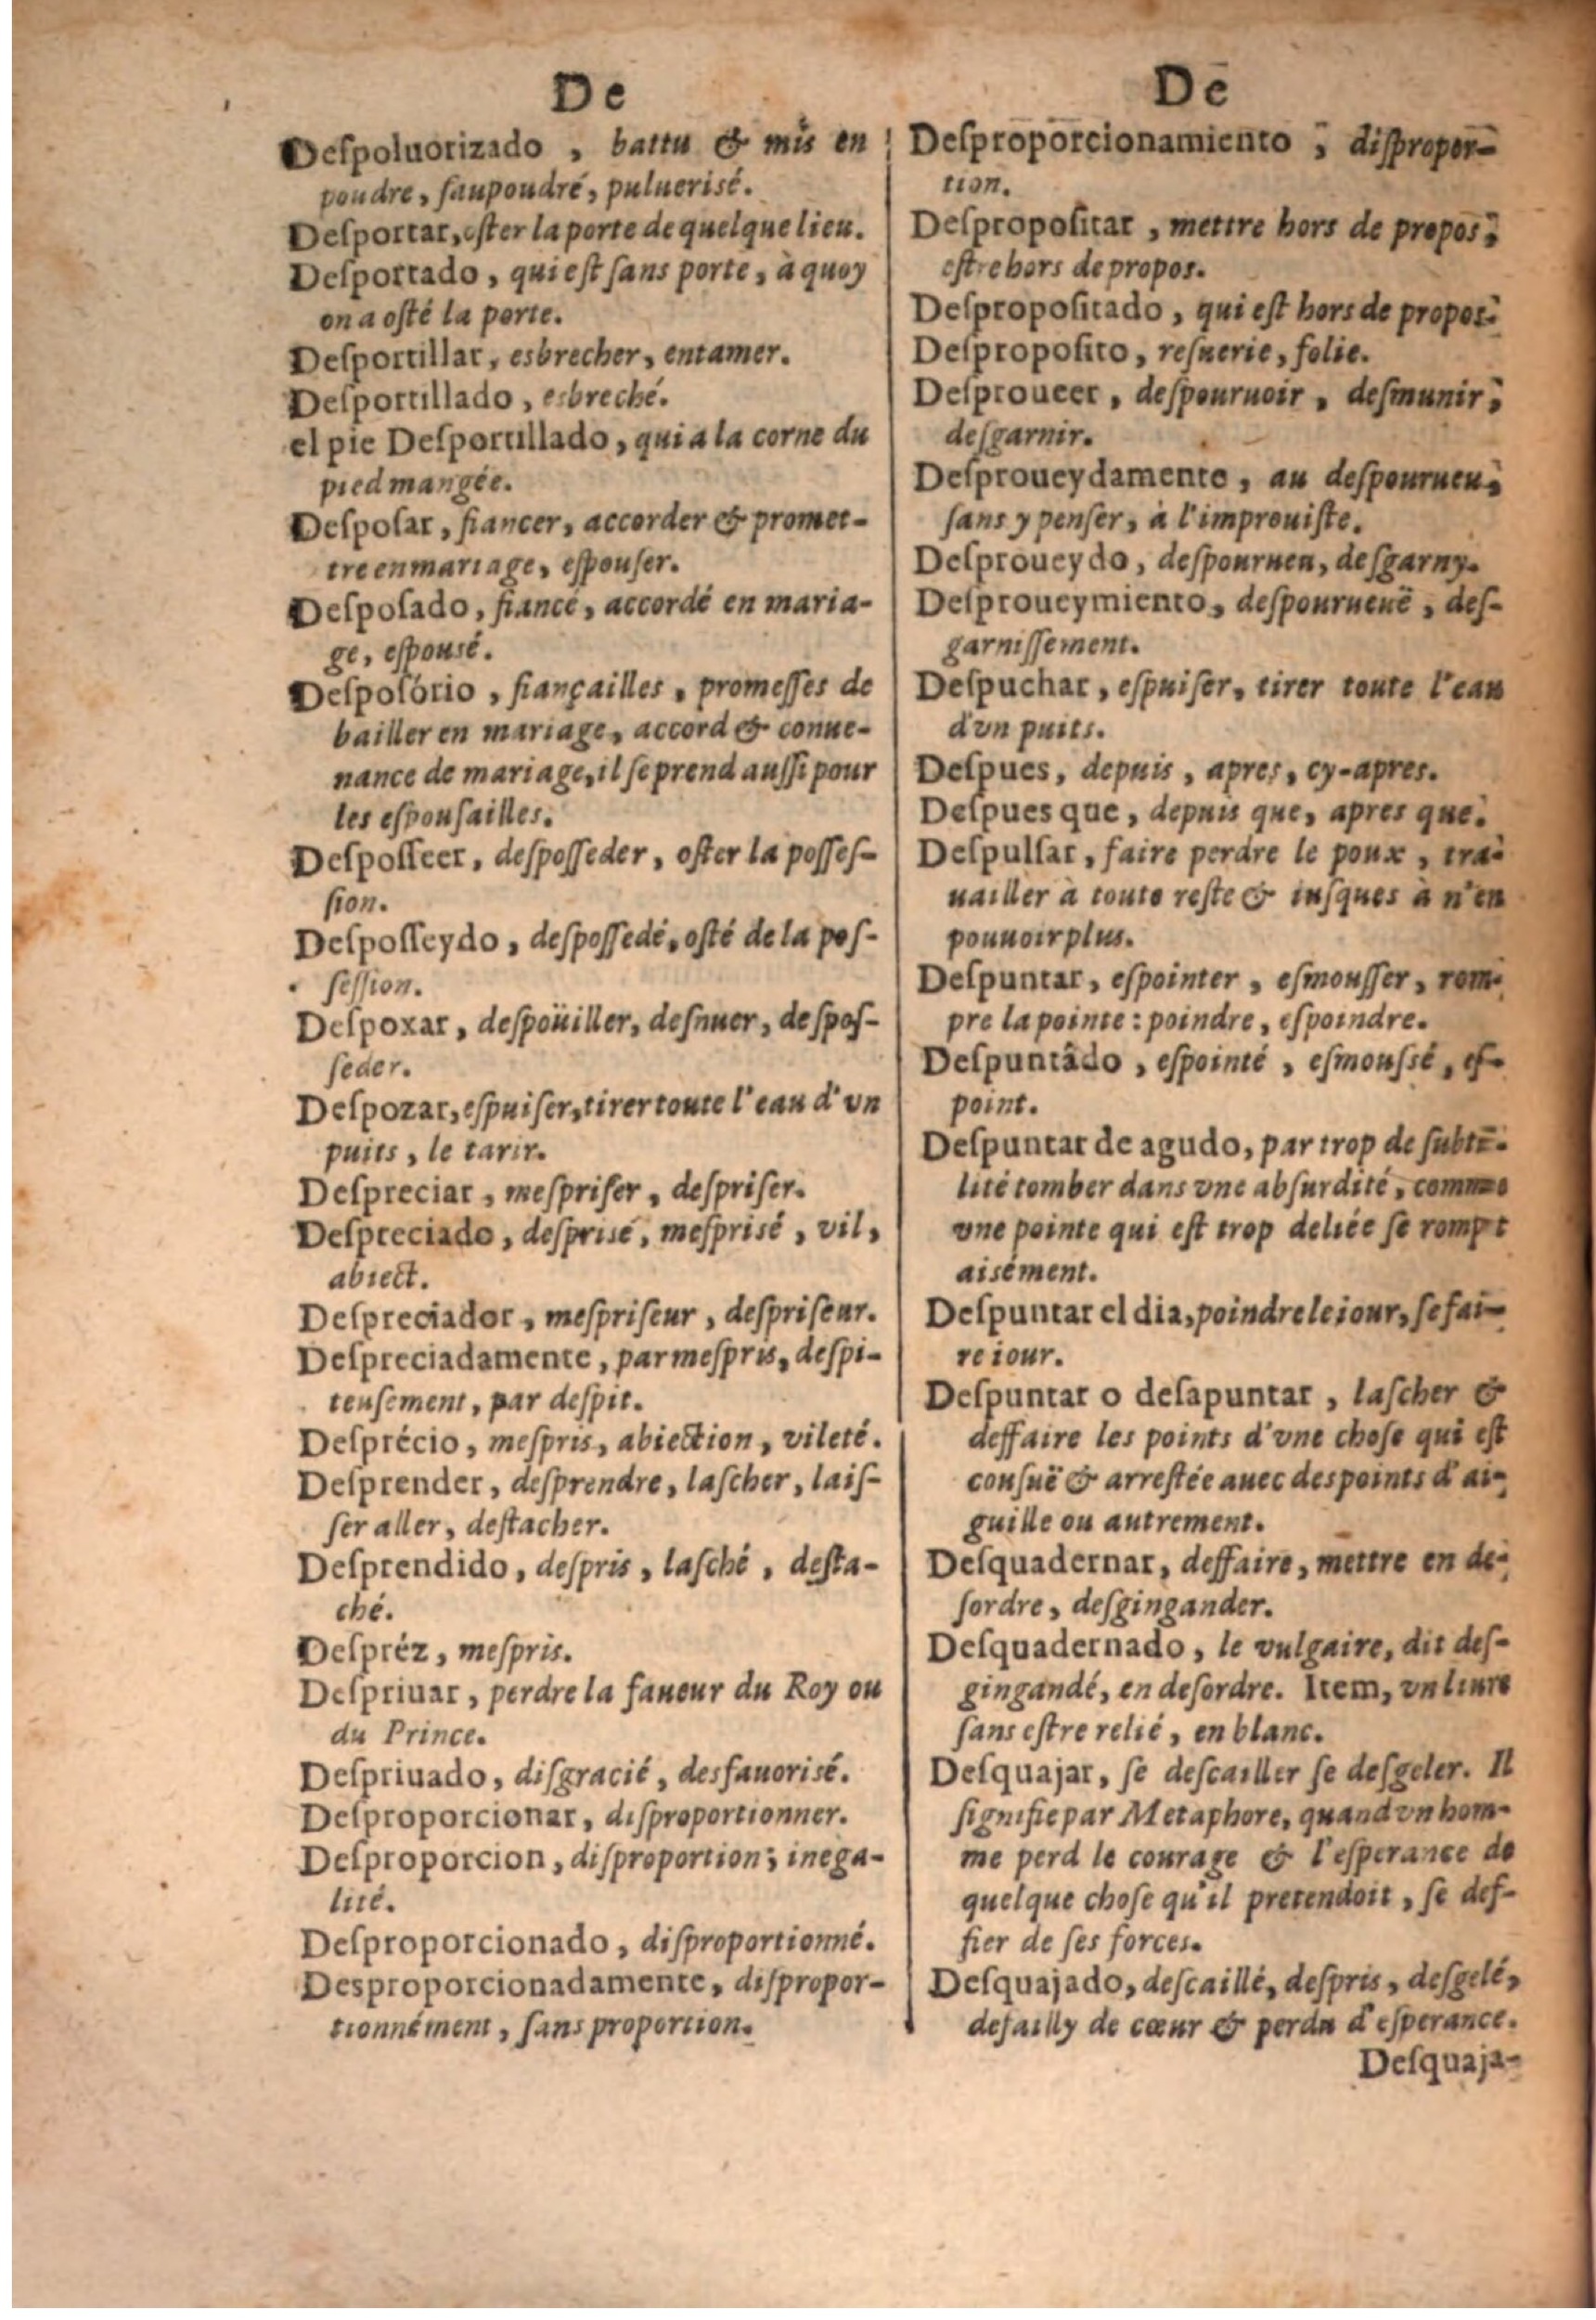 De
Deſpoluorizado , battu & mis en
poudre, ſaupoudré, puluerisé.
Deſportar, oſter la porte de quelque lieu.
Deſportado , qui eſt ſans porte , à quoy
on a oſté la porte.
Deſportillar, esbrecher, entamer.
Deſportillado , esbreché.
el pie Deſportillado , qui a la corne du
pied mangée.
Deſpoſar , fiancer, accorder & promet-
tre en mariage, eſpouſer.
Deſpoſado, fiancé, accordé en maria-
ge, eſpousé.
Deſpoſório , fiançailles , promeſſes de
bailler en mariage, accord & conue-
nance de mariage, il ſe prend auſſi pour
les eſpouſailles.
Deſpoſſeer, deſpoſſeder, oſter la poſſeſ-
ſion.
Deſpoſſeydo , deſpoſſedé, oſté de la poſ-
ſeſſion.
Deſpoxar, deſpoüiller, deſnuer, deſpoſ-
ſeder.
Deſpozar, eſpuiſer, tirer toute l'eau d'vn
puits , le tarir.
Deſpreciar , meſpriſer , deſpriſer.
Deſpreciado , deſprisé , meſprisé , vil,
abiect.
Deſpreciador , meſpriſeur , deſpriſeur.
Deſpreciadamente, par meſpris, deſpi-
teuſement, par deſpit.
Deſprécio, meſpris, abiection, vileté.
Deſprender, deſprendre, laſcher, laiſ-
ſer aller, deſtacher.
Deſprendido, deſpris , laſché , deſta-
ché.
Deſpréz , meſpris.
Deſpriuar , perdre la faueur du Roy ou
du Prince.
Deſpriuado, diſgracié, desfauorisé.
Deſproporcionar, diſproportionner.
Deſproporcion, diſproportion, inega-
lité.
Deſproporcionado, diſproportionné.
Desproporcionadamente, diſpropor-
tionnément, ſans proportion.
De
Deſproporcionamiento , diſpropor-
tion.
Deſpropoſitar , mettre hors de propos,
eſtre hors de propos.
Deſpropoſitado , qui eſt hors de propos.
Deſpropoſito, reſuerie, folie.
Deſproueer , deſpouruoir , deſmunir,
deſgarnir.
Deſproueydamente , au deſpourueu,
ſans y penſer, à l'improuiſte.
Deſproueydo, deſpourueu, deſgarny.
Deſproueymiento, deſpourueuë , deſ-
garniſſement.
Deſpuchar, eſpuiſer, tirer toute l'eau
d'vn puits.
Deſpues, depuis , apres, cy-apres.
Deſpues que, depuis que, apres que.
Deſpulſar, faire perdre le poux , tra-
uailler à toute reſte & iuſques à n'en
pouuoir plus.
Deſpuntar, eſpointer , eſmouſſer, rom-
pre la pointe : poindre, eſpoindre.
Deſpuntâdo , eſpointé , eſmouſsé , eſ-
point.
Deſpuntar de agudo, par trop de ſubti-
lité tomber dans vne abſurdité, comme
vne pointe qui eſt trop deliée ſe rompt
aisément.
Deſpuntar el dia, poindre le iour, ſe fai-
re iour.
Deſpuntar o deſapuntar , laſcher &
deffaire les points d'vne choſe qui eſt
couſuë & arreſtée auec des points d'ai-
guille ou autrement.
Deſquadernar, deffaire, mettre en de-
ſordre, deſgingander.
Deſquadernado, le vulgaire, dit deſ-
gingandé, en deſordre. Item, vn liure
ſans eſtre relié, en blanc.
Deſquajar, ſe deſcailler ſe deſgeler. Il
ſignifie par Metaphore, quand vn hom-
me perd le courage & l'eſperance de
quelque choſe qu'il pretendoit, ſe def-
fier de ſes forces.
Deſquajado, deſcaillé, deſpris, deſgelé,
defailly de cœur & perdu d'eſperance.
Deſquaja-